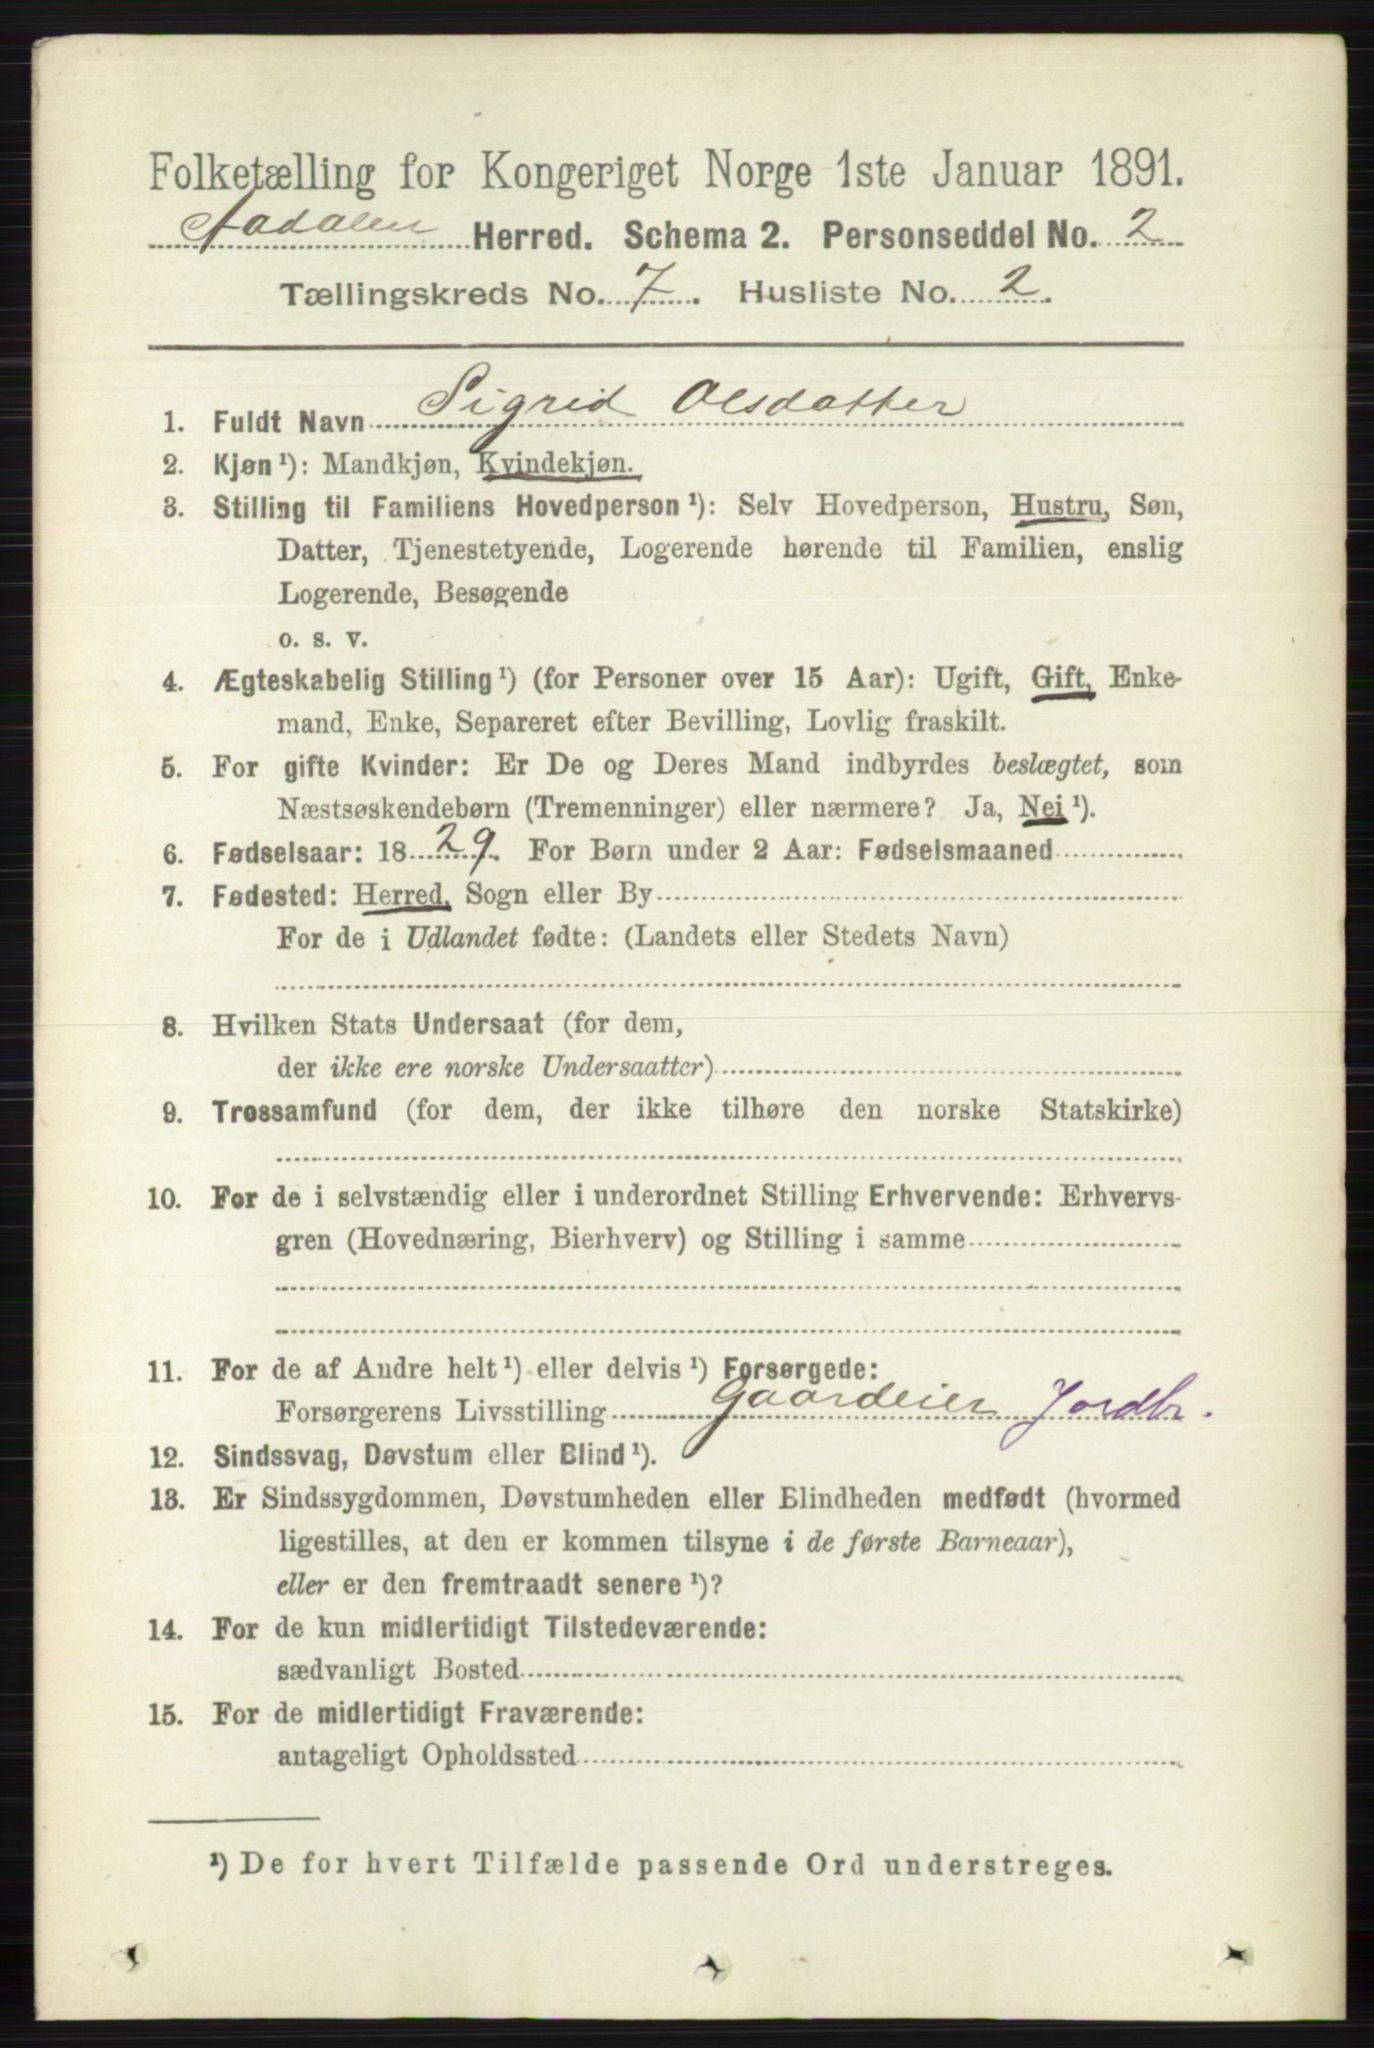 Folketælling for Kongeriget Norge 1ste Januar 1891.
Aadalen Herred. Schema 2. Personseddel No. 2
Tællingskreds No. 7. Husliste No. 2.
1. Fuldt Navn Sigrid Olsdatter
2. Kjøn ¹): Mandkjøn, Kvindekjøn.
3. Stilling til Familiens Hovedperson ¹): Selv Hovedperson, Hustru, Søn,
Datter, Tjenestetyende, Logerende hørende til Familien, enslig
Logerende, Besøgende
o. s. v.
4. Ægteskabelig Stilling ¹) (for Personer over 15 Aar): Ugift, Gift, Enke-
mand, Enke, Separeret efter Bevilling, Lovlig fraskilt.
5. For gifte Kvinder: Er De og Deres Mand indbyrdes beslægtet, som
Næstsøskendebørn (Tremenninger) eller nærmere? Ja, Nei ¹).
6. Fødselsaar: 1829. For Børn under 2 Aar: Fødselsmaaned
7. Fødested: Herred, Sogn eller By
For de i Udlandet fødte: (Landets eller Stedets Navn)
8. Hvilken Stats Undersaat (for dem,
der ikke ere norske Undersaatter)
9. Trossamfund (for dem, der ikke tilhøre den norske Statskirke)
10. For de i selvstændig eller i underordnet Stilling Erhvervende: Erhvervs-
gren (Hovednæring, Bierhverv) og Stilling i samme
11. For de af Andre helt ¹) eller delvis ¹) Forsørgede:
Forsørgerens Livsstilling Gaardeier Jordbr.
12. Sindssvag, Døvstum eller Blind ¹).
13. Er Sindssygdommen, Døvstumheden eller Blindheden medfødt (hvormed
ligestilles, at den er kommen tilsyne i de første Barneaar),
eller er den fremtraadt senere ¹)?
14. For de kun midlertidigt Tilstedeværende:
sædvanligt Bosted
15. For de midlertidigt Fraværende:
antageligt Opholdssted
¹) De for hvert Tilfælde passende Ord understreges.